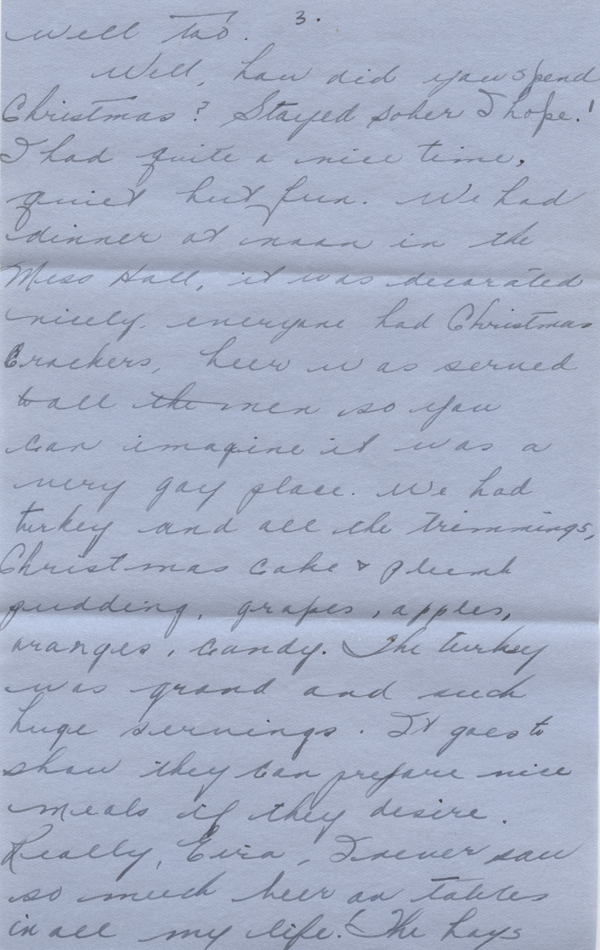 3.
well too.
Well, how did you spend
Christmas? Stayed sober I hope.!
I had quite a nice time,
quiet but fun. We had
dinner at noon in the
Mess Hall, it was decorated
nicely, everyone had Christmas
Crackers, beer was served
to all the men so you
can imagine it was a
very gay place. We had
turkey and all the trimmings,
Christmas cake & plumb
pudding, grapes, apples,
oranges, candy. The turkey
was grand and such
huge servings. It goes to
show they can prepare nice
meals if they desire.
Really, Eira, I never saw
so much beer on tables
in all my life! The boys